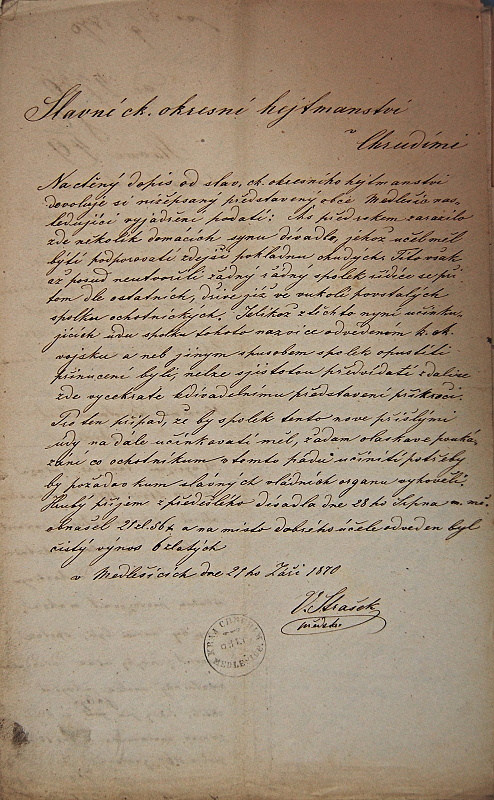 Slavné ck. okresní hejtmanství
v
Chrudimi
Na ctěný dopis od slav. ck. okresního hejtmanství
dovoluje si nížepsaný představený obce Medlešic nas-
ledující vyjadření podati: Ins před rokem zarazilo
zde několik domacích synu divadlo, jehož učel měl
býti podporovati zdejší pokladnu chudych. Tito však
až posud neutvořili žádný řádný spolek řídíce se při
tom dle ostatních, dříve již ve vukolí povstatých
spolku ochotnických. Jelikož z těchto nyní učinku-
jících udu spolku tohoto nazvíce odvedeném k. ck.
vojsku a neb jiným spusobem spolek opustiti
přinuceni byli, nelze s jistotou předvídati zdali se
zde vyckrate k divadelnímu představení přikročí.
Pro ten případ, že by spolek tento nove přistlými
udy na dále učinkovati měl, žádám o laskavé pouká-
zání co ochotníkum v tomto pádu učiniti potřeby
by požadavkum slavných vládních organu vyhověli.
Hrubý příjem z předešlého divadla dne 28ho Srpna m. mě.
obnášel 21 zl. 86 k a na místo dobrého účele odveden byl
čistý výnos 6 zlatých
v Medlešicích dne 21ho Září 1870
V. Strašek
představ.
KRAJ CHRUDIM
OBEC
MEDLEŠICE